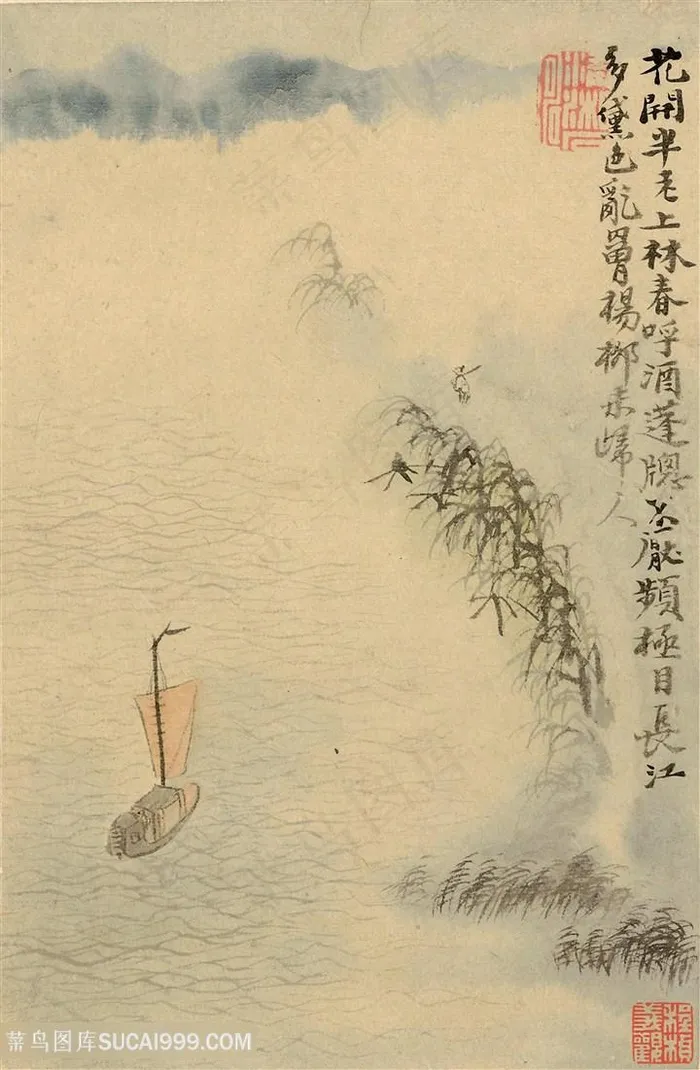 花開半老上林春呼酒蓬牕不厭頻極目長江
多黛色亂罥楊柳未歸人
菜鸟图库SUCAI999.COM